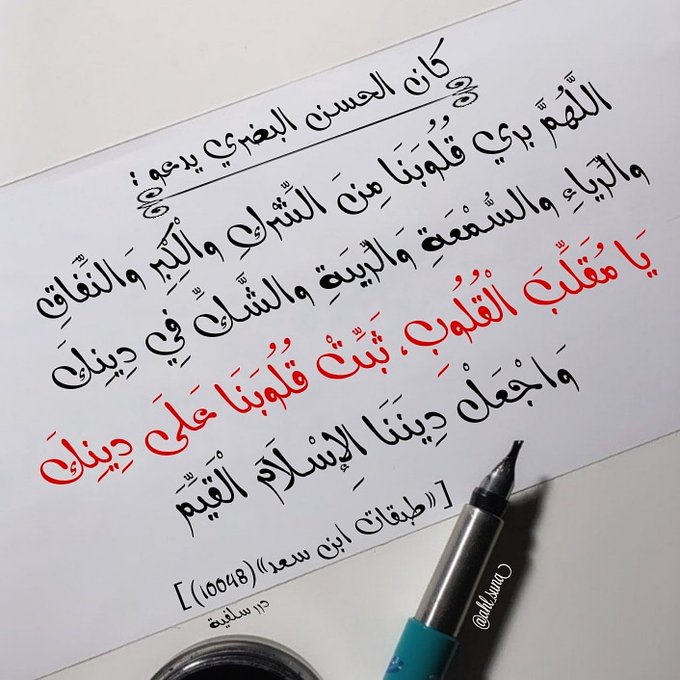 كان الحسن البصري يدعو :
اللَّهُمَّ بري قُلُوبَنَا مِنَ الشِّرْكِ والْكِبِرِ وَالنِّفَاقِ
والرِّيَاءِ والسُّمْعَةِ وَالرِّيبَةِ والشَّكِّ فِي دِينِكَ
يَا مُقَلِّبَ الْقُلُوبِ، ثَبِّتْ قُلُوبَنَا عَلَى دِينِكَ
وَاجْعَلْ دِينَنَا الإِسْلَامَ الْقَيِّمَ
[«طبقات ابن سعد» (10048)]
درر سلفية
@ahl_suna